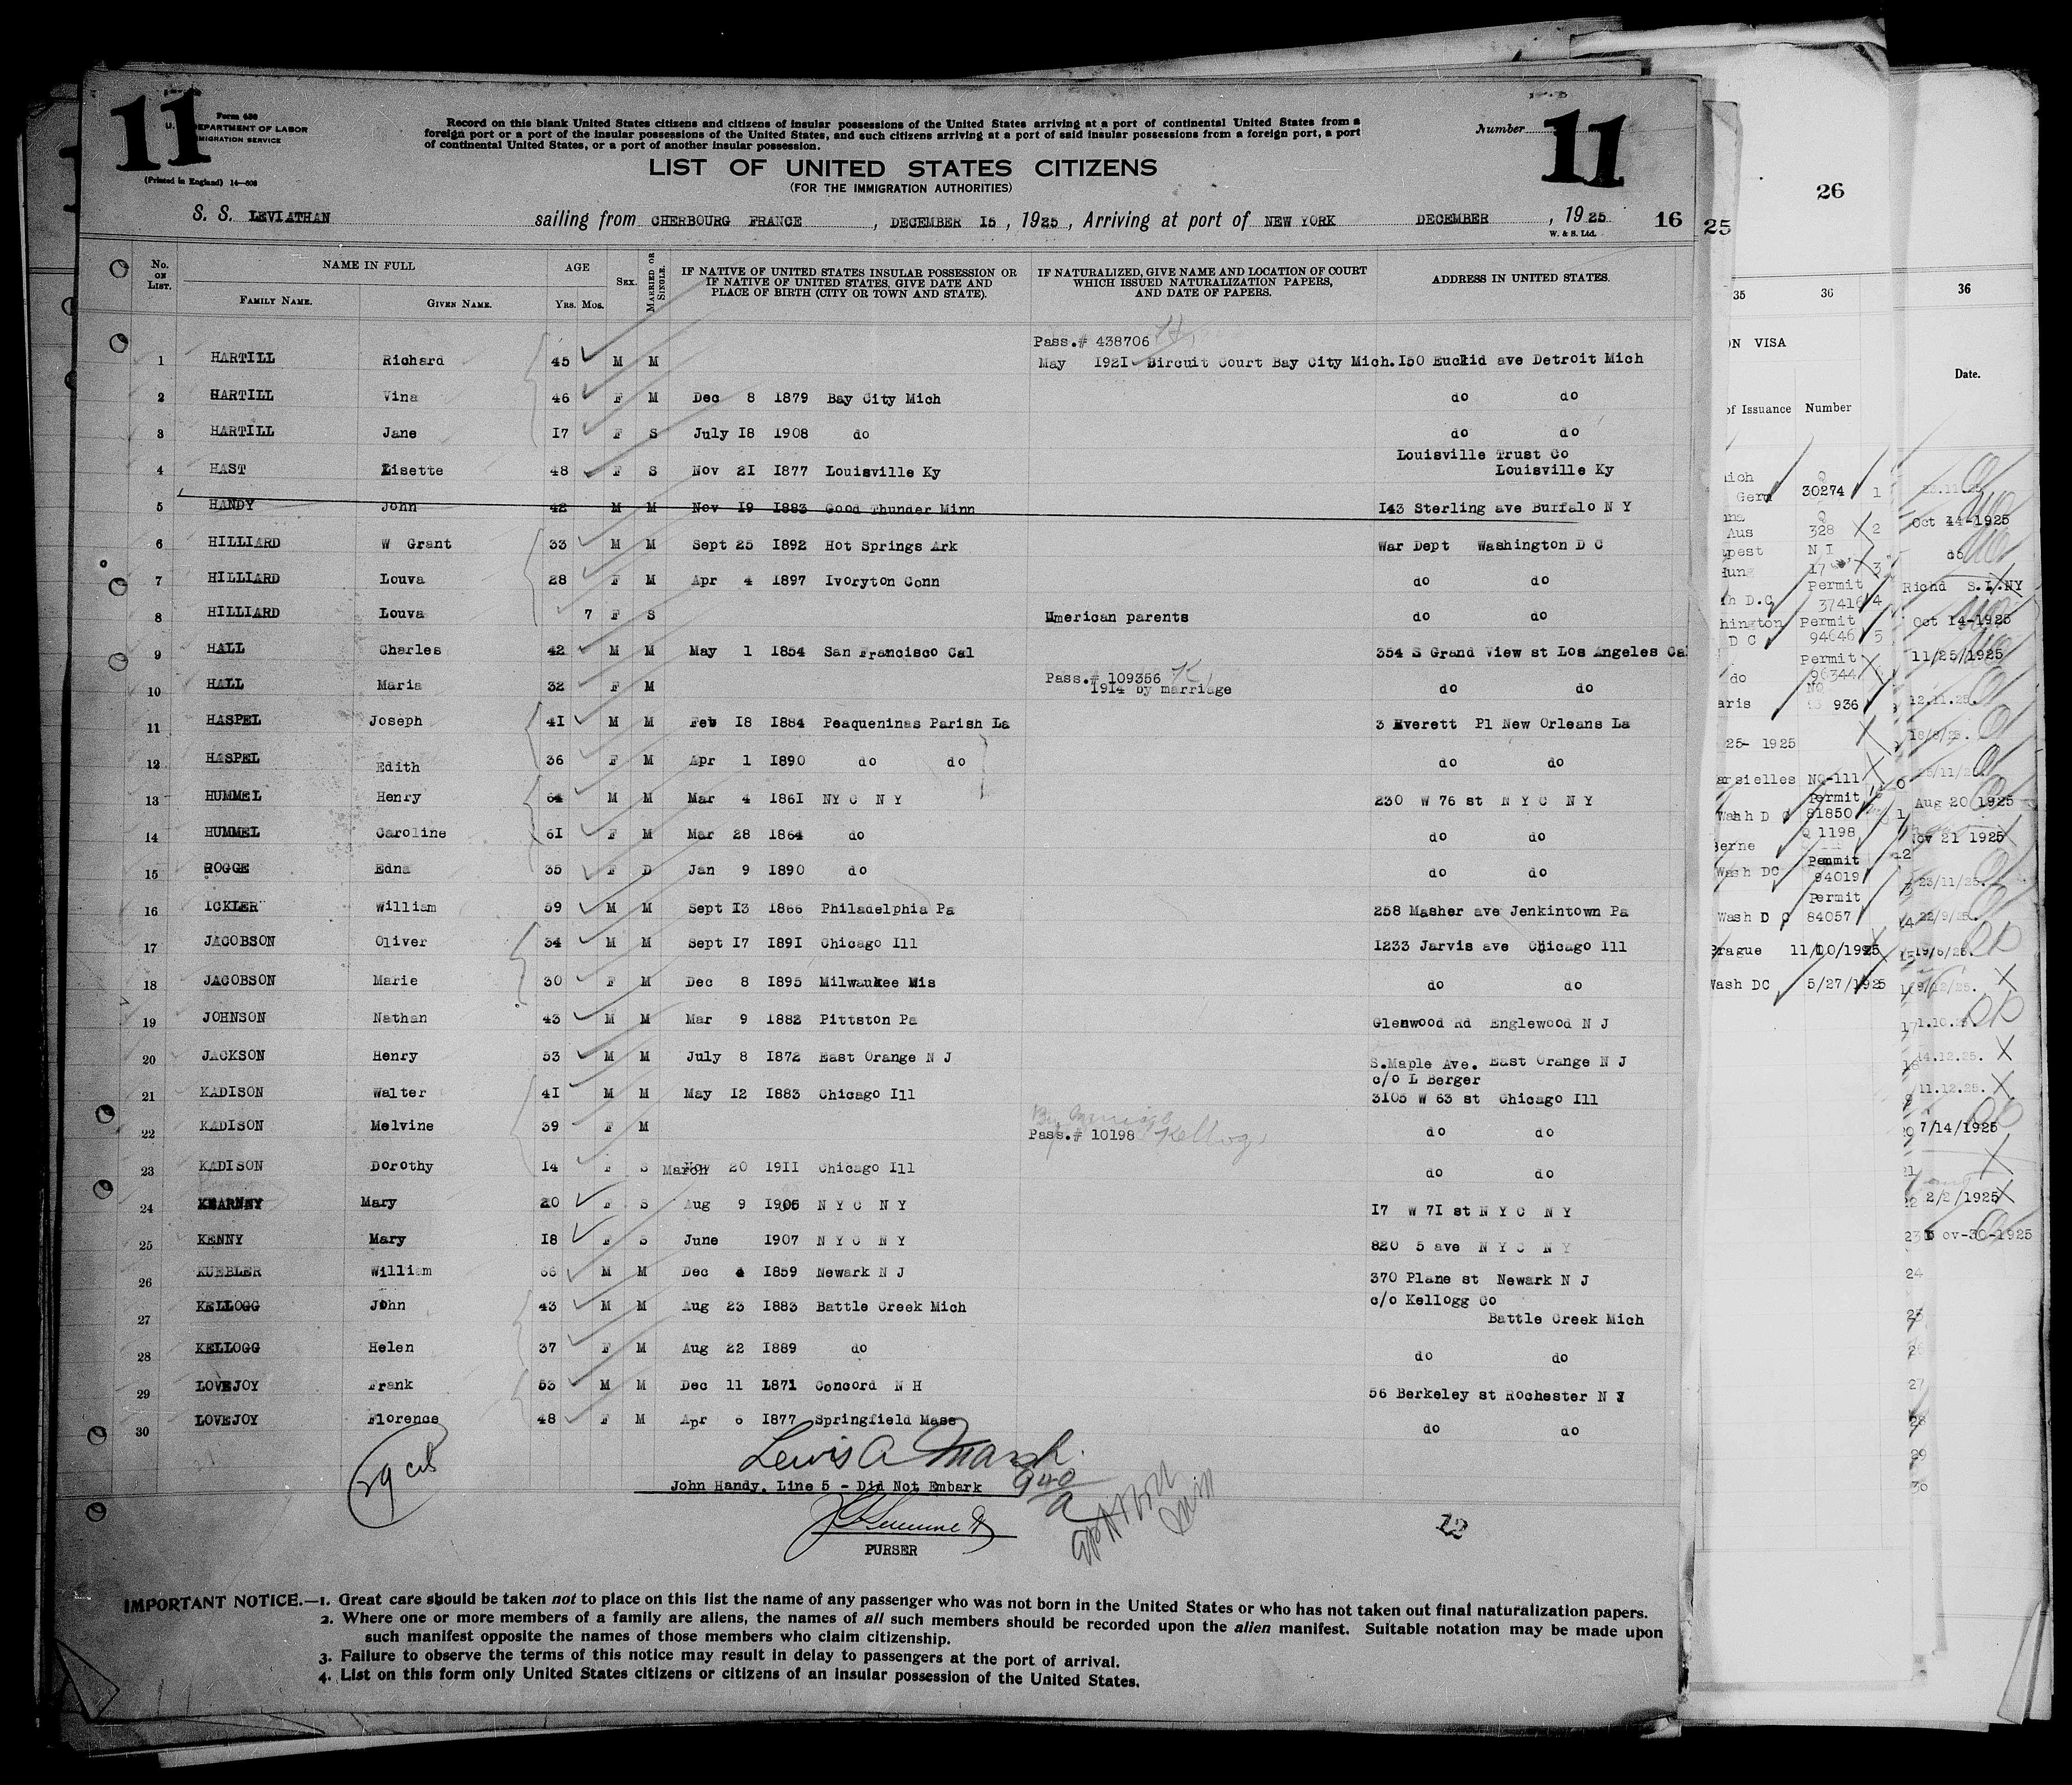 11
Form 630
U. S. DEPARTMENT OF LABOR
IMMIGRATION SERVICE
(Printed in England) 14—608
Record on this blank United States citizens and citizens of insular possessions of the United States arriving at a port of continental United States from a
foreign port or a port of the insular possessions of the United States, and such citizens arriving at a port of said insular possessions from a foreign port, a port
of continental United States, or a port of another insular possession.
Number
11
LIST OF UNITED STATES CITIZENS
(FOR THE IMMIGRATION AUTHORITIES)
S. S. LEVIATHAN sailing from CHERBOURG FRANCE, DECEMBER 15, 1925, Arriving at port of NEW YORK DECEMBER, 1925 16
W. & S. Ltd.
No. ON LIST. NAME IN FULL FAMILY NAME. GIVEN NAME. AGE Yrs. Mos. SEX. MARRIED OR SINGLE. IF NATIVE OF UNITED STATES INSULAR POSSESSION OR IF NATIVE OF UNITED STATES, GIVE DATE AND PLACE OF BIRTH (CITY OR TOWN AND STATE). IF NATURALIZED, GIVE NAME AND LOCATION OF COURT WHICH ISSUED NATURALIZATION PAPERS, AND DATE OF PAPERS. ADDRESS IN UNITED STATES.
Pass.# 438706
1 HARTILL Richard 45 M M May 1921 Bircuit Court Bay City Mich. 150 Euclid ave Detroit Mich
2 HARTILL Vina 46 F M Dec 8 1879 Bay City Mich do do
3 HARTILL Jane 17 F S July 18 1908 do do do
Louisville Trust Co
4 HAST Lisette 48 F S Nov 21 1877 Louisville Ky Louisville Ky
5 HANDY John 42 M M Nov 19 1883 Good Thunder Minn 143 Sterling ave Buffalo N Y
6 HILLIARD W Grant 33 M M Sept 25 1892 Hot Springs Ark War Dept Washington D C
7 HILLIARD Louva 28 F M Apr 4 1897 Ivoryton Conn do do
8 HILLIARD Louva 7 F S Umerican parents do do
9 HALL Charles 42 M M May 1 1854 San Francisco Cal 354 S Grand View st Los Angeles Cal
Pass.# 109356
10 HALL Maria 32 F M 1914 by marriage do do
11 HASPEL Joseph 41 M M Feb 18 1884 Peaqueninas Parish La 3 Everett Pl New Orleans La
12 HASPEL Edith 36 F M Apr 1 1890 do do do do
13 HUMMEL Henry 64 M M Mar 4 1861 NY C N Y 230 W 76 st N Y C N Y
14 HUMMEL Caroline 61 F M Mar 28 1864 do do do
15 ROGGE Edna 35 F D Jan 9 1890 do do do
16 ICKLER William 59 M M Sept 13 1866 Philadelphia Pa 258 Masher ave Jenkintown Pa
17 JACOBSON Oliver 34 M M Sept 17 1891 Chicago Ill 1233 Jarvis ave Chicago Ill
18 JACOBSON Marie 30 F M Dec 8 1895 Milwaukee Wis do do
19 JOHNSON Nathan 43 M M Mar 9 1882 Pittston Pa Glenwood Rd Englewood N J
20 JACKSON Henry 53 M M July 8 1872 East Orange N J S.Maple Ave. East Orange N J
c/o L Berger
21 KADISON Walter 41 M M May 12 1883 Chicago Ill 3105 W 63 st Chicago Ill
22 KADISON Melvine 39 F M Pass.# 10198 do do
23 KADISON Dorothy 14 F S March 20 1911 Chicago Ill do do
24 KEARNEY Mary 20 F S Aug 9 1905 N Y C N Y 17 W 71 st N Y C N Y
25 KENNY Mary 18 F S June 1907 N Y C N Y 820 5 ave N Y C N Y
26 KUEBLER William 66 M M Dec 4 1859 Newark N J 370 Plane st Newark N J
27 KELLOGG John 43 M M Aug 23 1883 Battle Creek Mich c/o Kellogg Co
Battle Creek Mich
28 KELLOGG Helen 37 F M Aug 22 1889 do do do
29 LOVEJOY Frank 53 M M Dec 11 1871 Concord N H 56 Berkeley st Rochester N Y
30 LOVEJOY Florence 48 F M Apr 6 1877 Springfield Mass do do
Lewis A Marsh
John Handy. Line 5 - Did Not Embark
PURSER
12
IMPORTANT NOTICE.—1. Great care should be taken not to place on this list the name of any passenger who was not born in the United States or who has not taken out final naturalization papers.
2. Where one or more members of a family are aliens, the names of all such members should be recorded upon the alien manifest. Suitable notation may be made upon
such manifest opposite the names of those members who claim citizenship.
3. Failure to observe the terms of this notice may result in delay to passengers at the port of arrival.
4. List on this form only United States citizens or citizens of an insular possession of the United States.
25
26
35 36
36
VISA
Date.
of Issuance Number
30274 1
Aus 328 2
Oct 14-1925
Hung
Permit
37416 4
Richd S.I.NY
Permit
D C 94646 5
Oct 14-1925
Permit
do 96344
11/25/1925
936
25- 1925
NQ-111
Permit
Wash D C 81850
Aug 20 1925
Berne Q 1198
Nov 21 1925
Permit
Wash DC 94019
23/11/25.
Permit
Wash D C 84057
22/9/25.
Prague 11/10/1925
Wash DC 5/27/1925
1.10.25.
14.12.25.
11.12.25.
7/14/1925
2/2/1925
Nov-30-1925
24
25
26
27
28
29
30